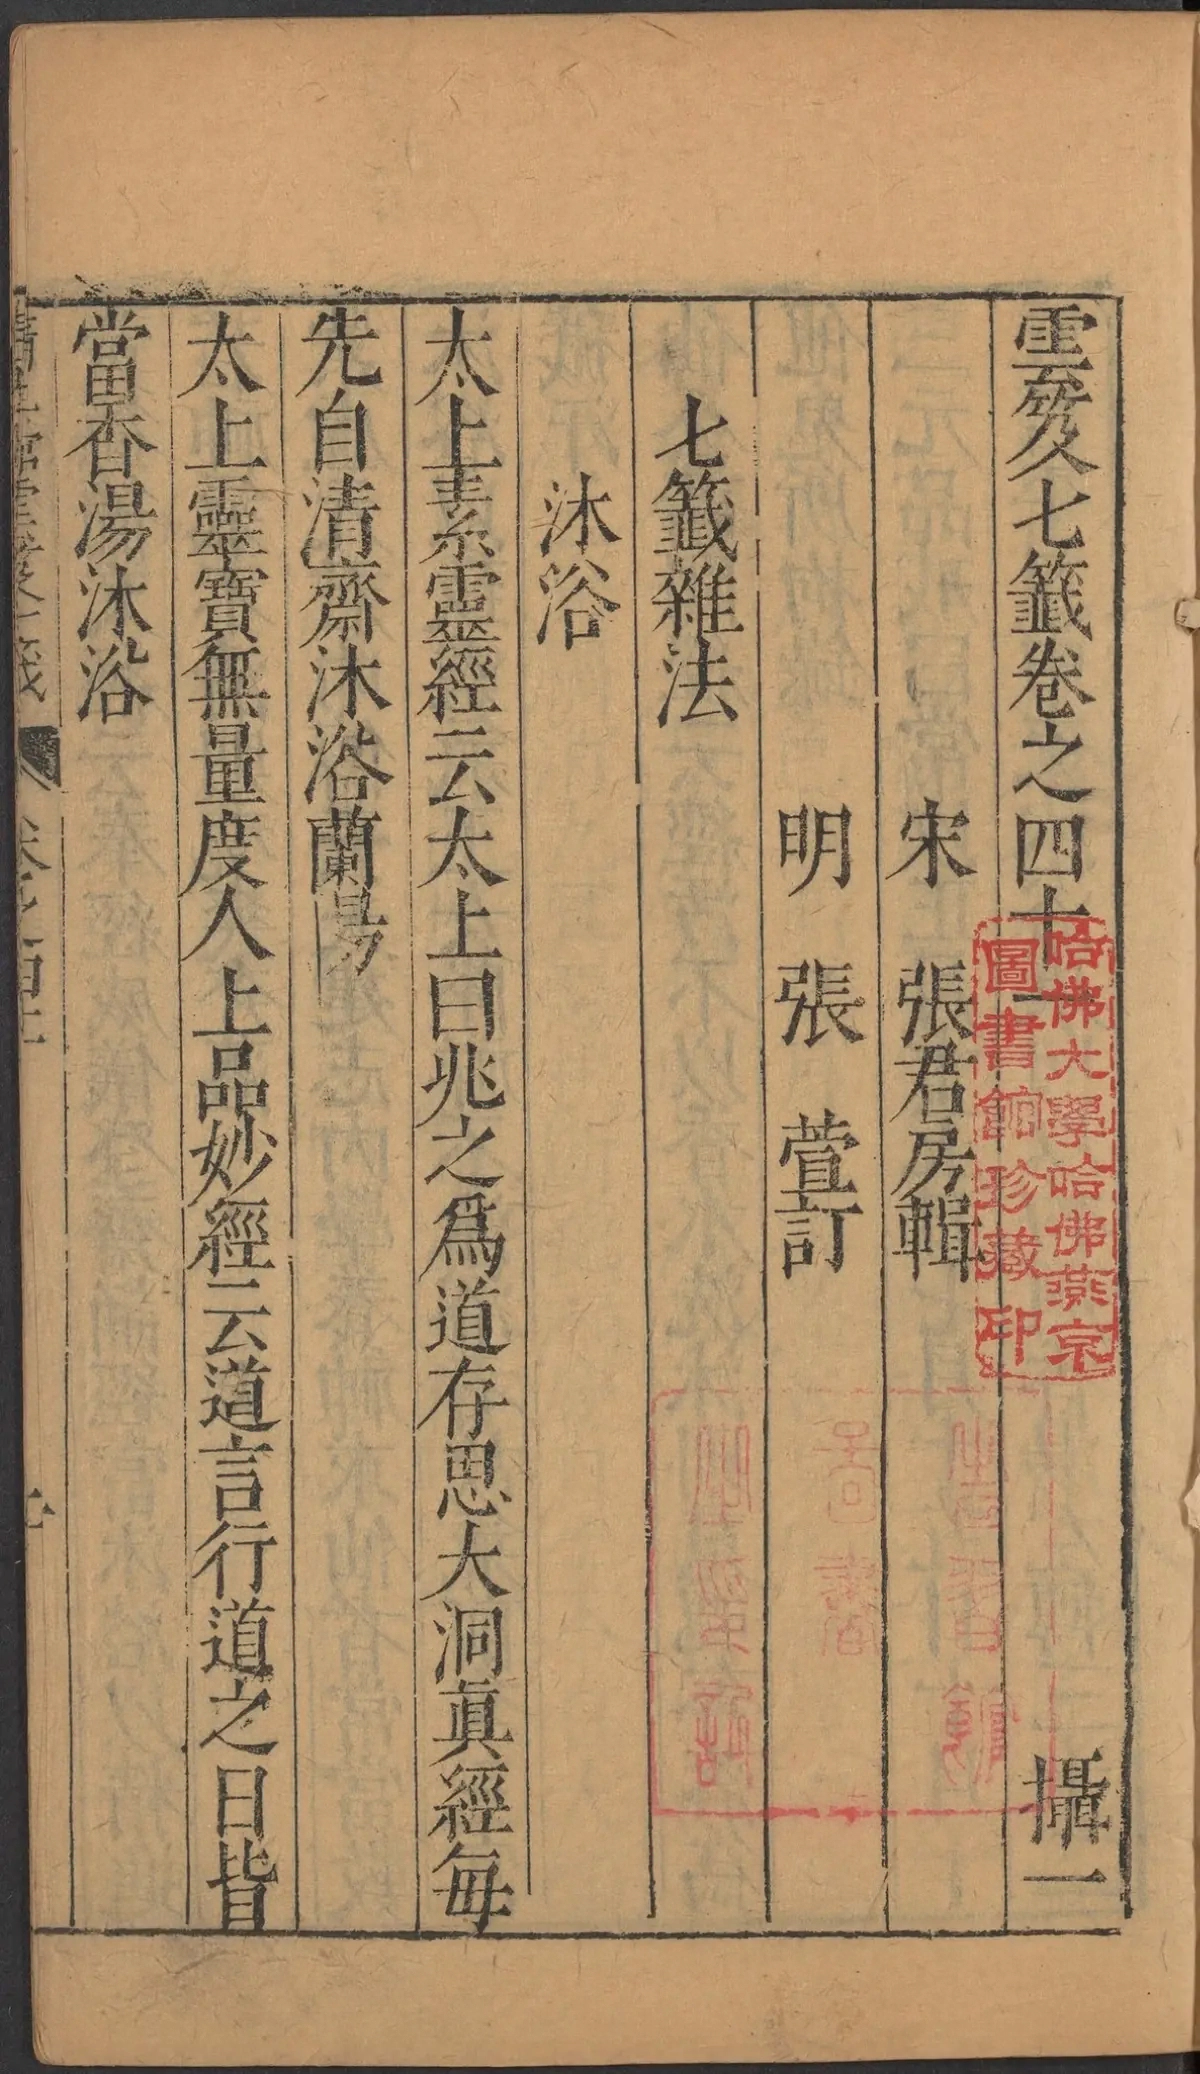 雲笈七籤卷之四十一 攝一
宋 張君房輯
明 張 萱訂
七籤雜法
沐浴
太上素靈經云太上曰兆之爲道存思大洞眞經每
先自清齋沐浴蘭湯
太上靈寶無量度人上品妙經云道言行道之日皆
當香湯沐浴
哈佛大學哈佛燕京
圖書館珍藏印